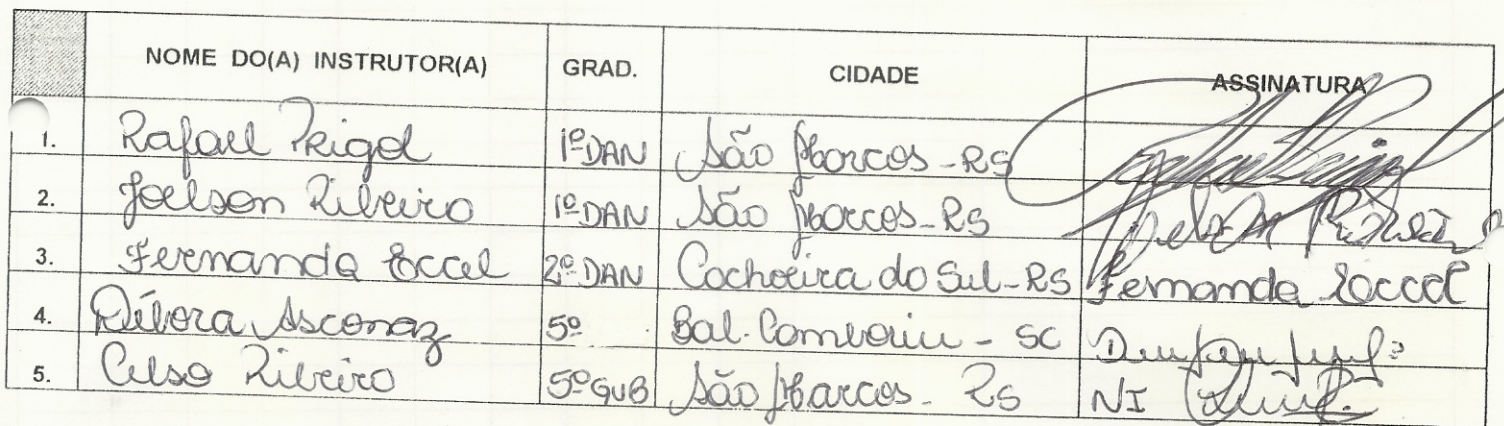 NOME DO(A) INSTRUTOR(A) GRAD. CIDADE ASSINATURA
1. Rafael Reigel 1º DAN São Marcos - RS
2. Joelson Ribeiro 1º DAN São Marcos - RS Joelson Ribeiro
3. Fernanda Eccel 2º DAN Cachoeira do Sul - RS Fernanda Eccel
4. Débora Asconaz 5º Bal. Camboriu - SC
5. Celso Ribeiro 5º GUB São Marcos - RS NI